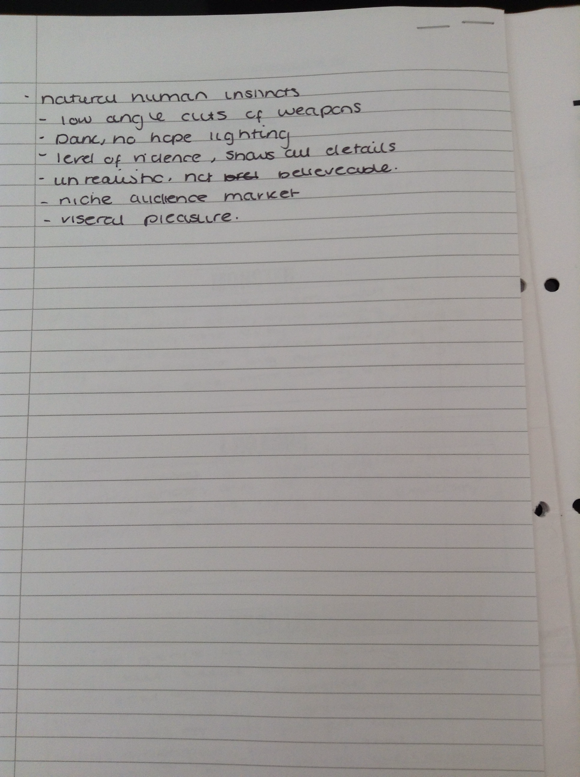 · natural human instincts
- low angle cuts of weapons
- Dark, no hope lighting
- level of violence, shows all details
- unrealistic, not believeable.
- niche audience market
- viseral pleasure.